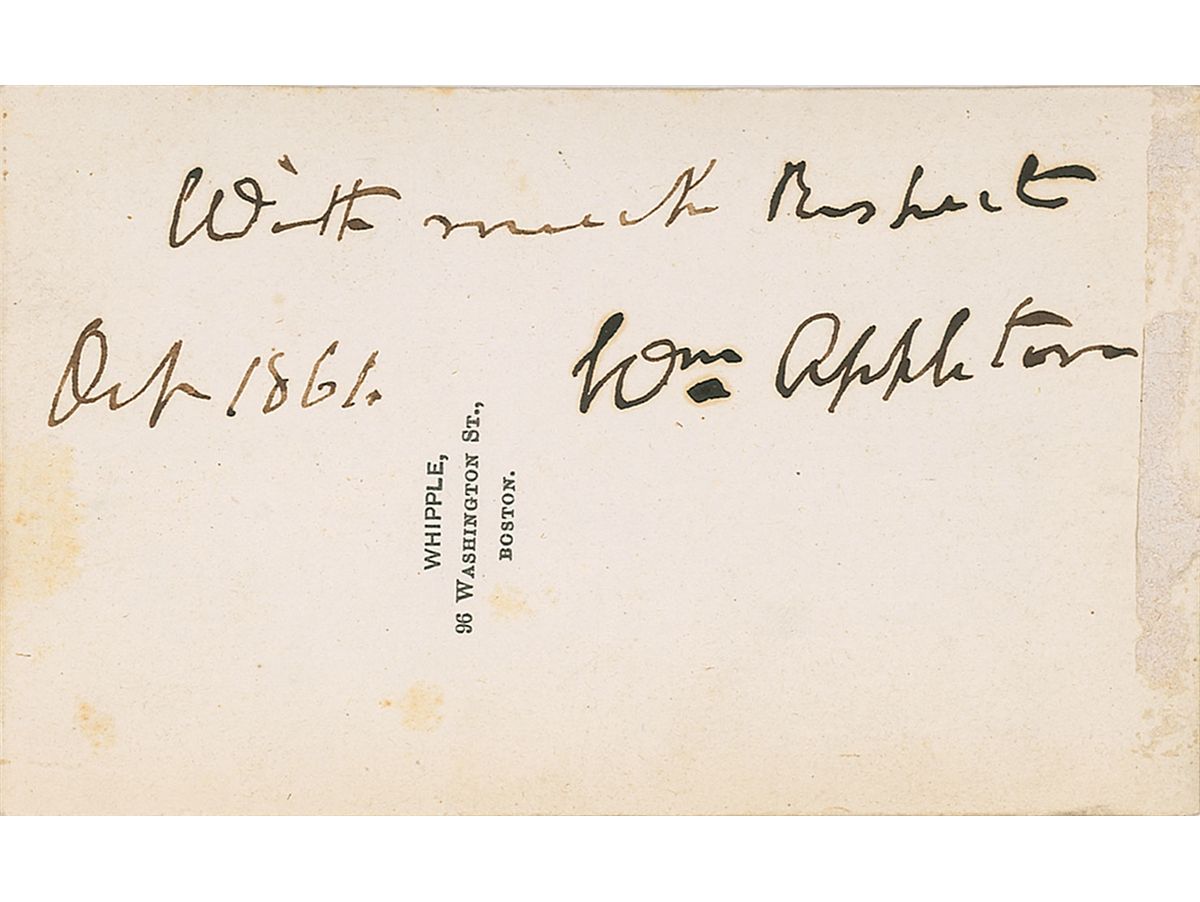 With much Respect
1861.
Wm Appleton
WHIPPLE,
96 WASHINGTON ST.,
BOSTON.